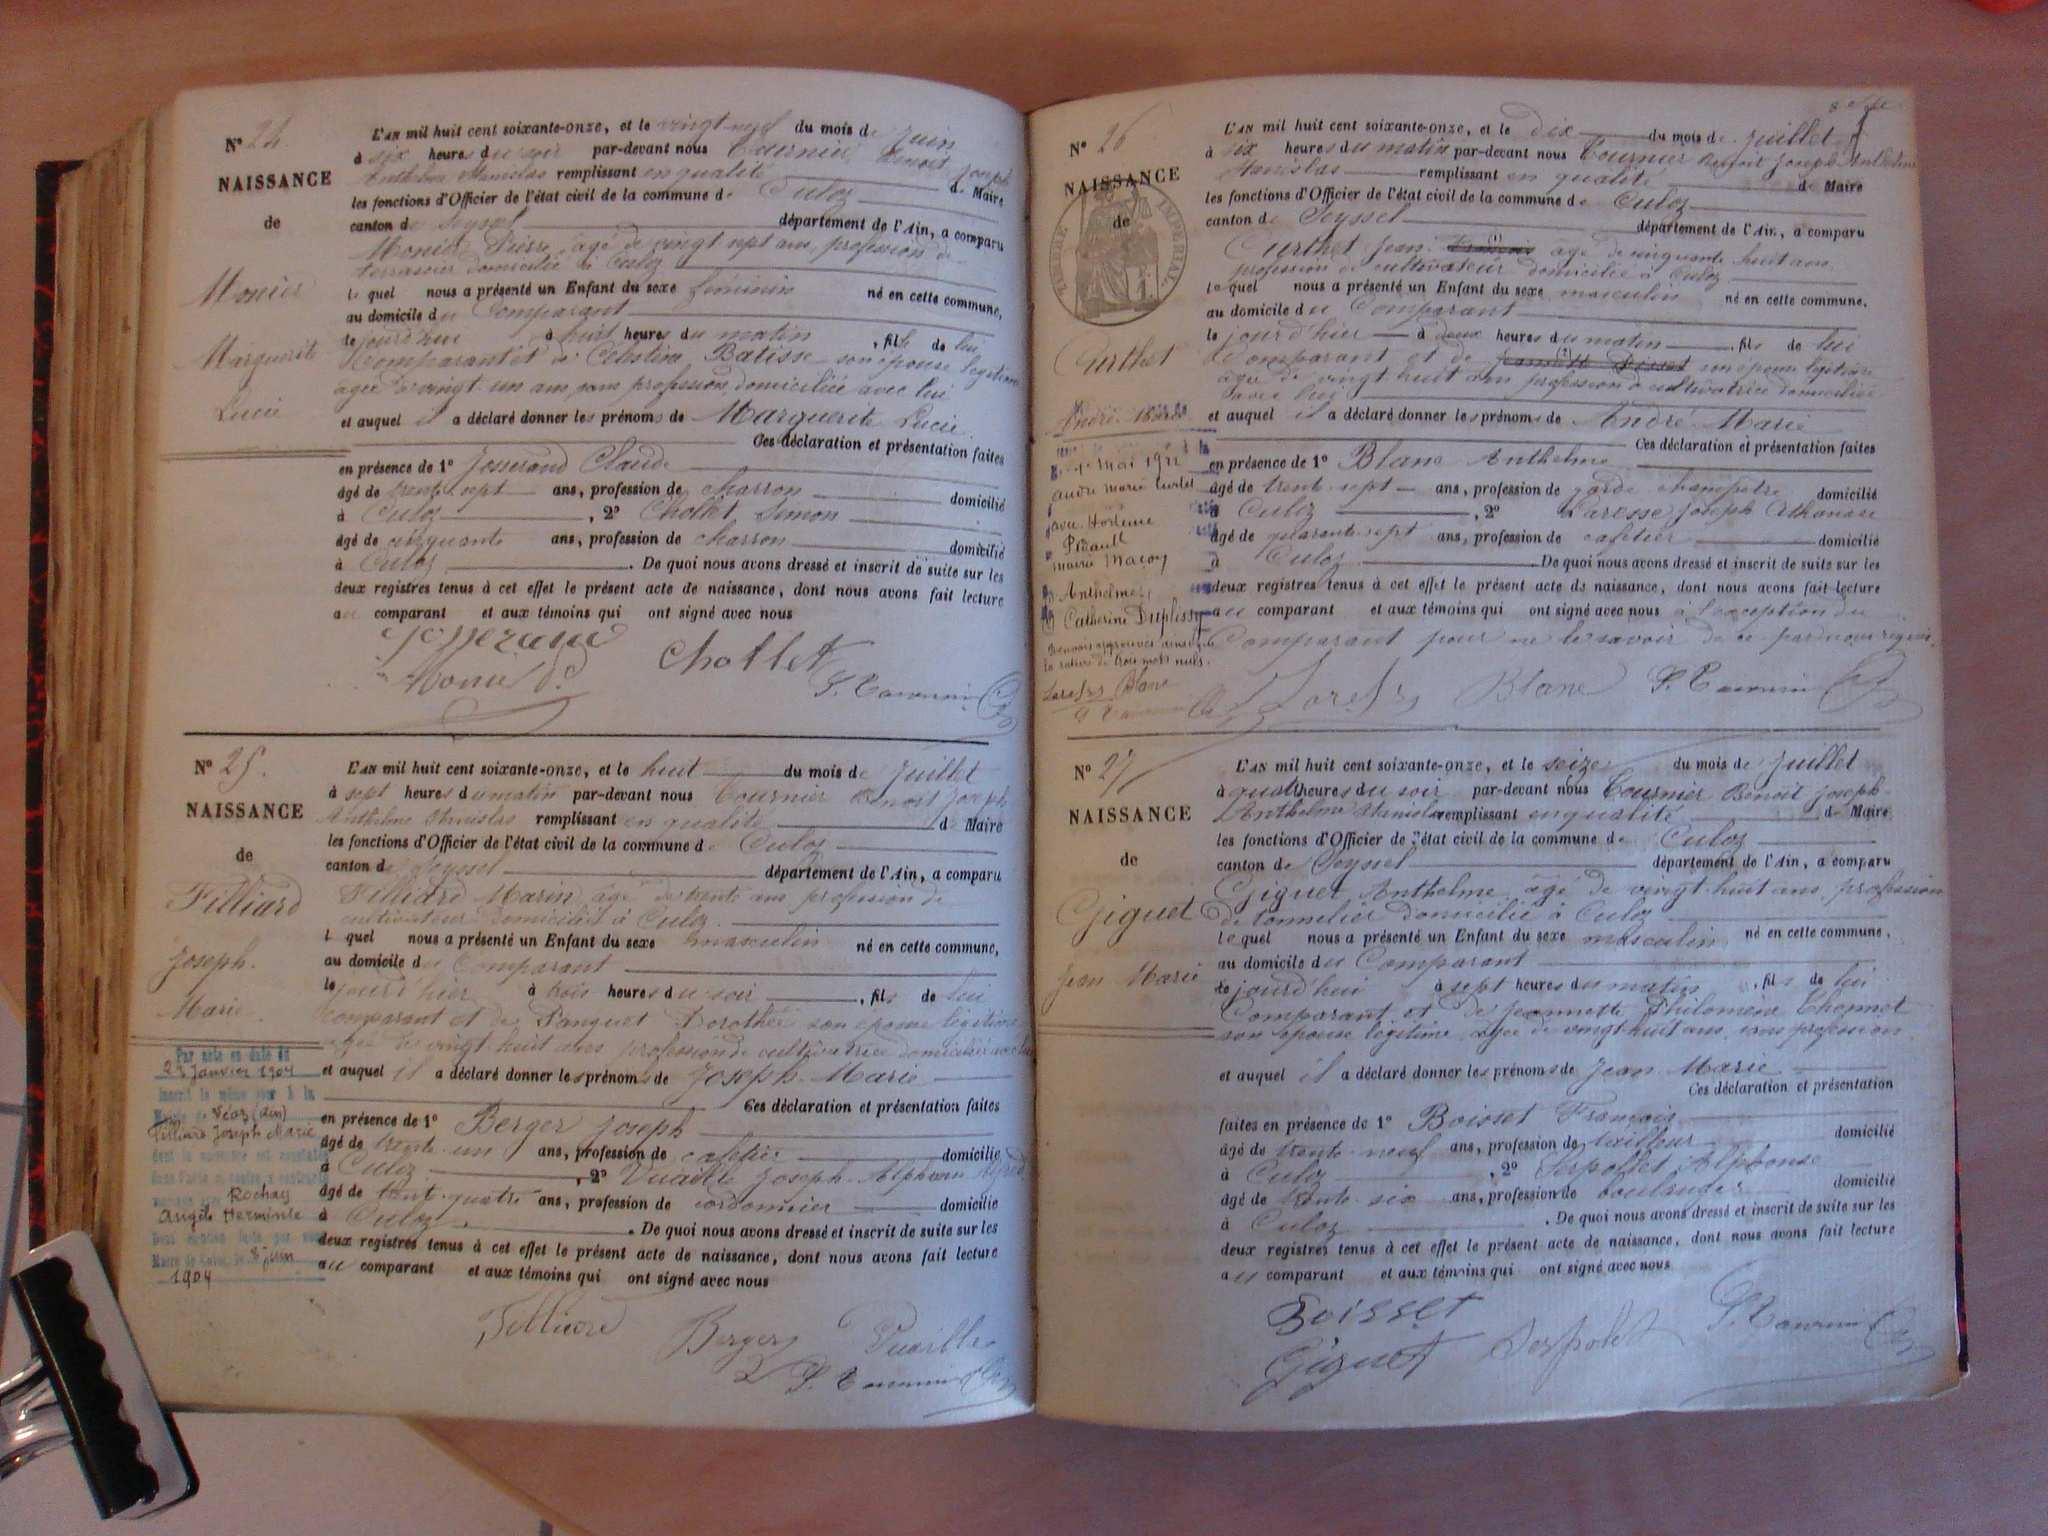 N° 24.
NAISSANCE
de
Monier
Marguerite
Lucie
L'AN mil huit cent soixante-onze, et le vingt-neuf du mois de Juin
à six heures du soir par-devant nous Tournier Benoit Joseph
Anthelme Stanislas remplissant en qualité de Maire
les fonctions d'Officier de l'état civil de la commune de Culoz
canton de Seyssel département de l'Ain, a comparu
Monier Pierre, âgé de vingt sept ans, profession de
terrassier domicilié à Culoz
le quel nous a présenté un Enfant du sexe féminin né en cette commune,
au domicile du Comparant
le jourd'hui à huit heures du matin , fille de lui
Comparant et de Célestine Batisse son épouse légitime
agée de vingt un ans, sans profession, domiciliée avec lui
et auquel il a déclaré donner les prénoms de Marguerite Lucie
Ces déclaration et présentation faites
en présence de 1° Josserand Claude
âgé de trente sept ans, profession de charron domicilié
à Culoz , 2° Chollet Simon
âgé de cinquante ans, profession de charron domicilié
à Culoz . De quoi nous avons dressé et inscrit de suite sur les
deux registres tenus à cet effet le présent acte de naissance, dont nous avons fait lecture
au comparant et aux témoins qui ont signé avec nous
Josserand
Chollet
Monier P.
N° 25.
NAISSANCE
de
Filliard
Joseph
Marie
Par acte en date du
23 Janvier 1904
inscrit le même jour à la
Mairie de (Ain)
Filliard Joseph Marie
dont la naissance est constatée
dans l'acte ci contre a contracté
mariage avec Rochay
Angèle Herminie
Dont mention faite par nous
Maire de Culoz, le 8 juin
1904
L'AN mil huit cent soixante-onze, et le huit du mois de Juillet
à sept heures du matin par-devant nous Tournier Benoit Joseph
Anthelme Stanislas remplissant en qualité de Maire
les fonctions d'Officier de l'état civil de la commune de Culoz
canton de Seyssel département de l'Ain, a comparu
Filliard Marin, âgé de trente ans profession de
cultivateur domicilié à Culoz
le quel nous a présenté un Enfant du sexe masculin né en cette commune,
au domicile du Comparant
le jourd'hier à trois heures du soir , fils de lui
comparant et de Panguet Dorothée son épouse légitime
agée de vingt huit ans profession de cultivatrice domiciliée avec lui
et auquel il a déclaré donner les prénoms de Joseph-Marie
Ces déclaration et présentation faites
en présence de 1° Berger Joseph
âgé de trente-un ans, profession de cafetier domicilié
à Culoz , 2° Vuaille Joseph-Alphonse Alfred
âgé de trente quatre ans, profession de cordonnier domicilié
à Culoz . De quoi nous avons dressé et inscrit de suite sur les
deux registres tenus à cet effet le présent acte de naissance, dont nous avons fait lecture
au comparant et aux témoins qui ont signé avec nous
Filliard
Berger
Vuaille
N° 26
NAISSANCE
de
TIMBRE IMPÉRIAL
Curthet
André Marie
Mai 1922
André Marie Curtet
avec Hortense
Préault
mairie Maçon
Anthelme
Catherine Duplissy
Renvois approuvés ainsi que
la rature de trois mots nuls.
Laresse Blanc
L'AN mil huit cent soixante-onze, et le dix du mois de Juillet
à six heures du matin par-devant nous Tournier Benoit Joseph Anthelme
Stanislas remplissant en qualité de Maire
les fonctions d'Officier de l'état civil de la commune de Culoz
canton de Seyssel département de l'Ain, a comparu
Curthet Jean François âgé de cinquante huit ans
profession de cultivateur domicilié à Culoz
le quel nous a présenté un Enfant du sexe masculin né en cette commune,
au domicile du Comparant
le jourd'hier à deux heures du matin , fils de lui
Comparant et de son épouse légitime
agée de vingt huit ans profession de cultivatrice domiciliée
avec lui
et auquel il a déclaré donner les prénoms de André Marie
Ces déclaration et présentation faites
en présence de 1° Blanc Anthelme
âgé de trente-sept ans, profession de garde champêtre domicilié
à Culoz , 2° Laresse Joseph Athanase
âgé de quarante sept ans, profession de cafetier domicilié
à Culoz . De quoi nous avons dressé et inscrit de suite sur les
deux registres tenus à cet effet le présent acte de naissance, dont nous avons fait lecture
au comparant et aux témoins qui ont signé avec nous à l'exception du
Comparant pour ne le savoir de ce par nous requis.
Blanc
N° 27
NAISSANCE
de
Giguet
Jean Marie
L'AN mil huit cent soixante-onze, et le seize du mois de Juillet
à quatre heures du soir par-devant nous Tournier Benoit Joseph-
Anthelme Stanislas remplissant en qualité de Maire
les fonctions d'Officier de l'état civil de la commune de Culoz
canton de Seyssel département de l'Ain, a comparu
Giguet Anthelme, âgé de vingt-huit ans, profession
de tonnelier domicilié à Culoz
le quel nous a présenté un Enfant du sexe masculin né en cette commune,
au domicile du Comparant
le jourd'hui à sept heures du matin , fils de lui
Comparant et de Jeannette Philomène Thonnet
son épouse légitime, agée de vingt-huit ans, sans profession
et auquel il a déclaré donner les prénoms de Jean Marie
Ces déclaration et présentation
faites en présence de 1° Boisset François
âgé de trente-neuf ans, profession de tailleur domicilié
à Culoz , 2° Serpollet Alphonse
âgé de trente-six ans, profession de boulanger domicilié
à Culoz . De quoi nous avons dressé et inscrit de suite sur les
deux registres tenus à cet effet le présent acte de naissance, dont nous avons fait lecture
au comparant et aux témoins qui ont signé avec nous
Boisset
Giguet
Serpollet